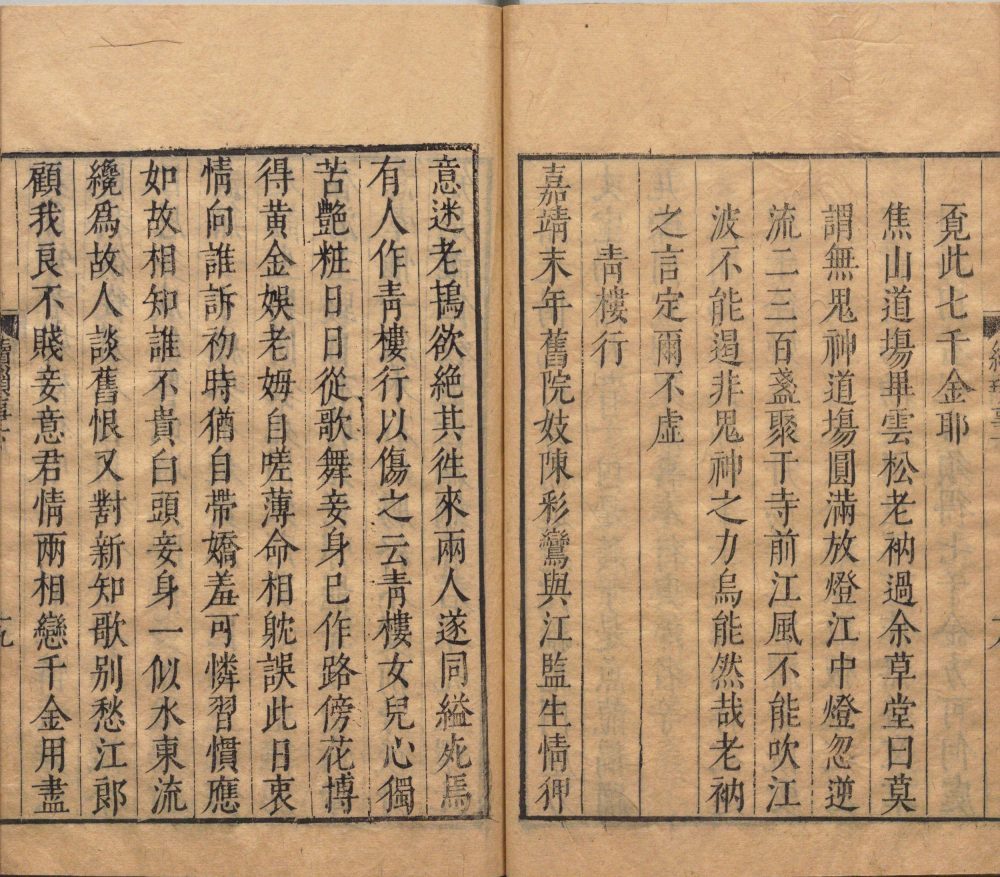 覓此七千金耶
焦山道場畢雲松老衲過余草堂曰莫
謂無鬼神道場圓滿放燈江中燈忽逆
流二三百盞聚于寺前江風不能吹江
波不能遏非鬼神之力烏能然哉老衲
之言定爾不虛
青樓行
嘉靖末年舊院妓陳彩鸞與江監生情狎
意迷老鴇欲絕其徃來兩人遂同縊死焉
有人作青樓行以傷之云青樓女兒心獨
苦艷粧日日從歌舞妾身已作路傍花博
得黃金娛老姆自嗟薄命相躭誤此日衷
情向誰訴初時猶自帶嬌羞可憐習慣應
如故相知誰不貴白頭妾身一似水東流
纔爲故人談舊恨又對新知歌别愁江郎
顧我良不賤妾意君情兩相戀千金用盡